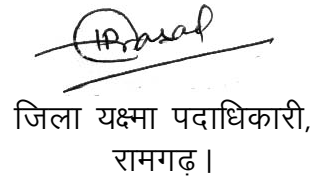 IPrasad
जिला यक्ष्मा पदाधिकारी,
रामगढ़।